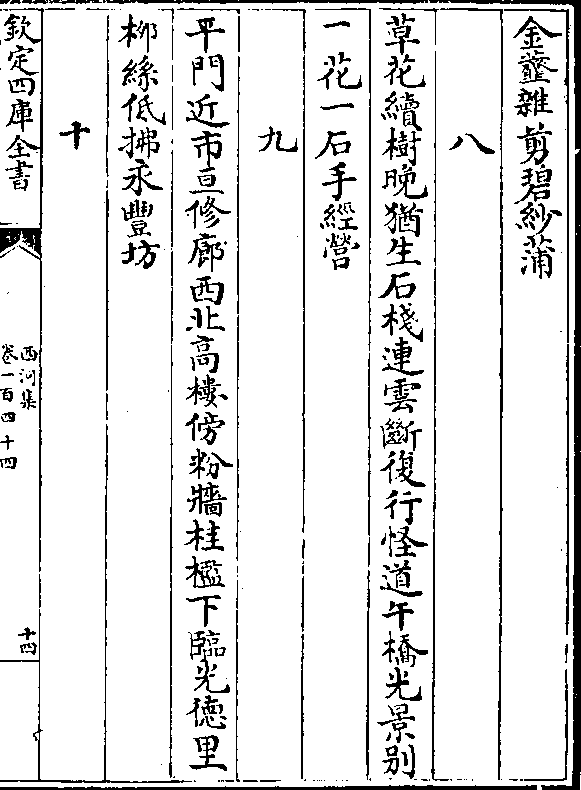 金虀雜剪碧紗蒲
八
草花續樹晚猶生石棧連雲斷復行怪道午橋光景别
一花一石手經營
九
平門近市亘修廊西北高樓傍粉牆桂檻下臨光德里
柳絲低拂永豐坊
十
欽定四庫全書
西河集
卷一百四十四
十四